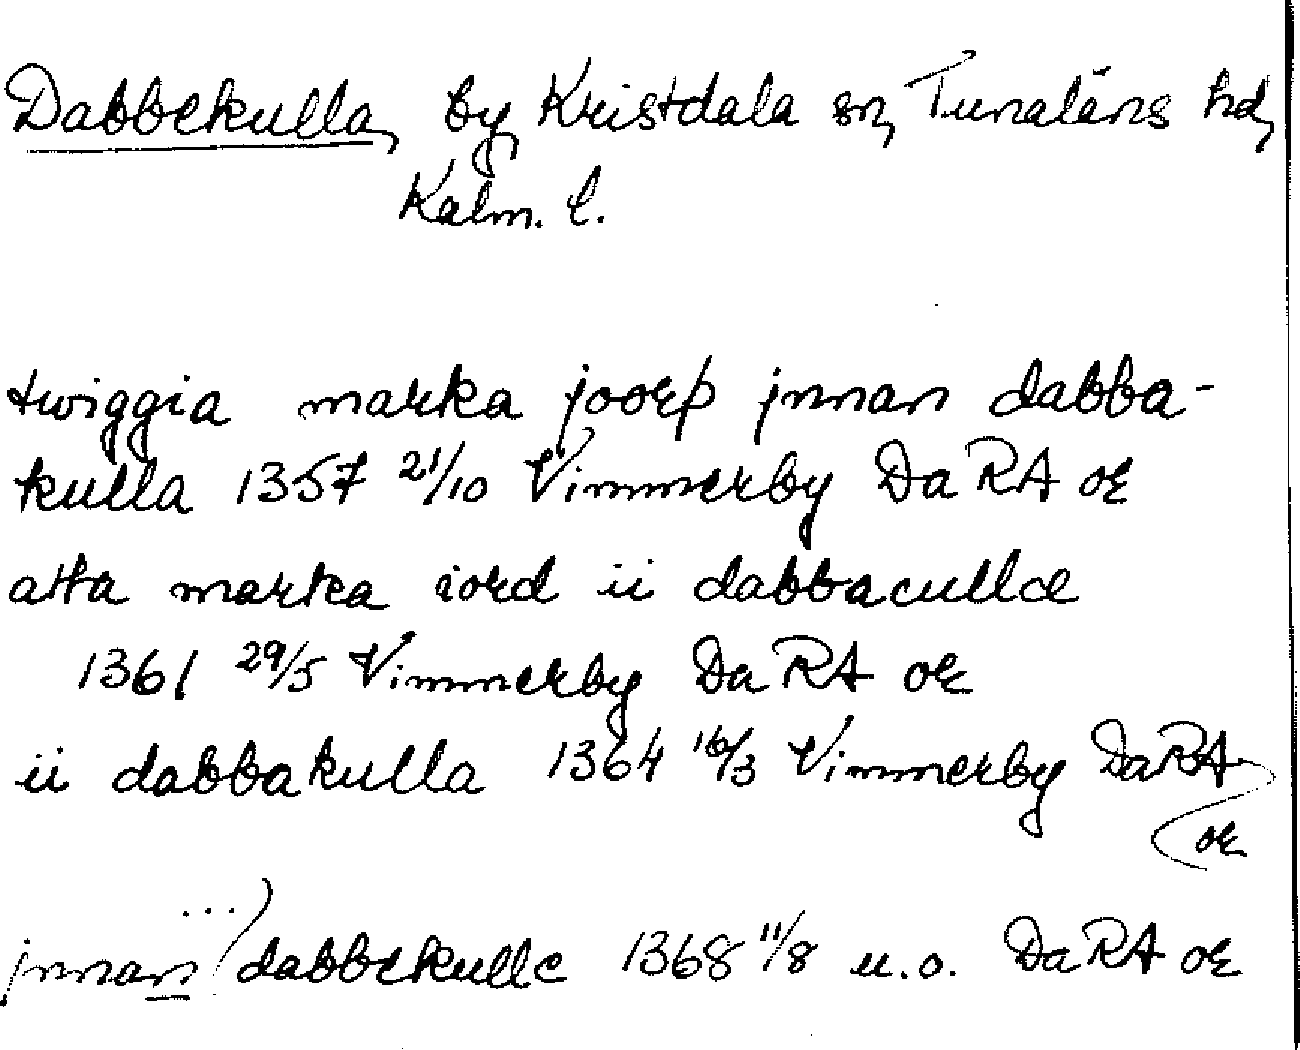 Dabbekulla, by, Kristdala sn, Tunaläns hd,
Kalm. l.
twiggia marka joorþ jnnan dabba-
kulla 1357 21/10 Vimmerby DaRA or
atta marka iord ii dabbacullæ
1361 29/5 Vimmerby DaRA or
ii dabbakulla 1364 16/3 Vimmerby DaRA
or
...
jnnan dabbekulle 1368 11/8 u.o. DaRA or